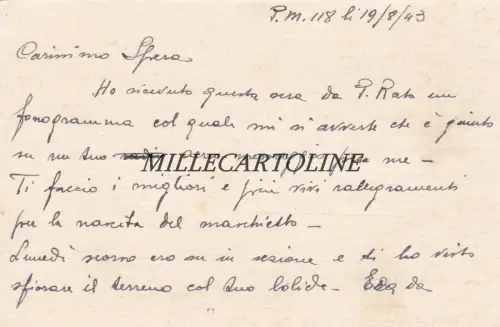 P.M. 118 li 19/8/43
Carissimo Spera
Ho ricevuto questa sera da P. Rata un
fonogramma col quale mi si avverte che è giunto
su un tuo aereo messaggio per me –
MILLECARTOLINE
Ti faccio i migliori e più vivi rallegramenti
per la nascita del maschietto –
Lunedì scorso ero su in sezione e ti ho visto
sfiorare il terreno col tuo bolide – Era da